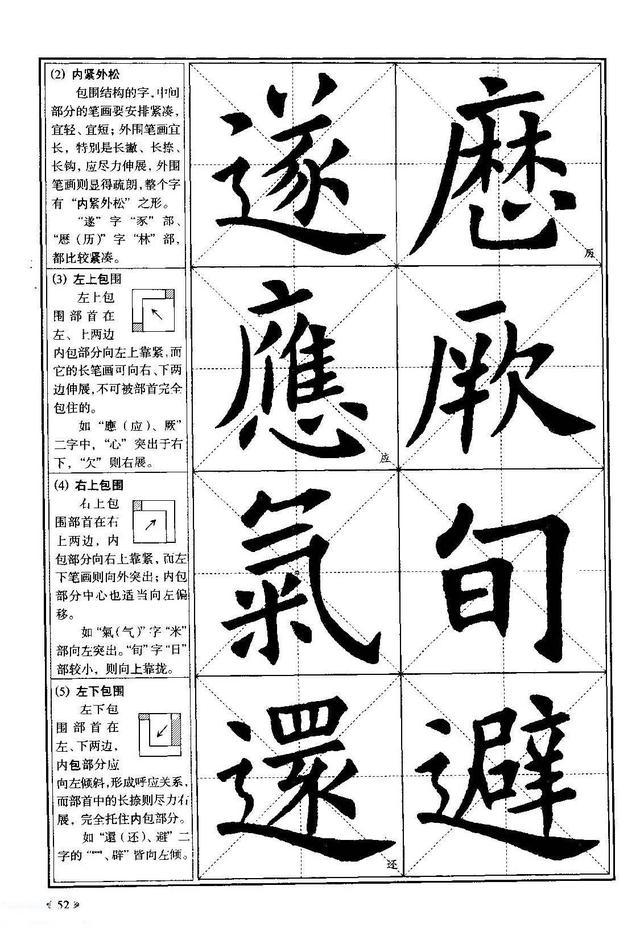 (2) 内紧外松
包围结构的字,中间
部分的笔画要安排紧凑,
宜轻、宜短；外围笔画宜
长，特别是长撇、长捺、
长钩，应尽力伸展，外围
笔画则显得疏朗,整个字
有“内紧外松”之形。
“遂”字“豕”部、
“暦(历)”字“林”部,
都比较紧凑。
遂 歴
历
(3) 左上包围
左上包
围部首在
左、上两边
内包部分向左上靠紧,而
它的长笔画可向右、下两
边伸展,不可被部首完全
包住的。
如“應(应)、厥”
二字中，“心”突出于右
下，“欠”则右展。
應 厥
应
(4) 右上包围
右上包
围部首在右
上两边，内
包部分向右上靠紧，而左
下笔画则向外突出；内包
部分中心也适当向左偏
移。
如“氣(气)”字“米”
部向左突出。“旬”字“日”
部较小，则向上靠拢。
氣 旬
(5) 左下包围
左下包
围部首在
左、下两边,
内包部分应
向左倾斜,形成呼应关系,
而部首中的长捺则尽力右
展，完全托住内包部分。
如“還(还)、避”二
字的“、辟”皆向左倾。
還 避
还
52